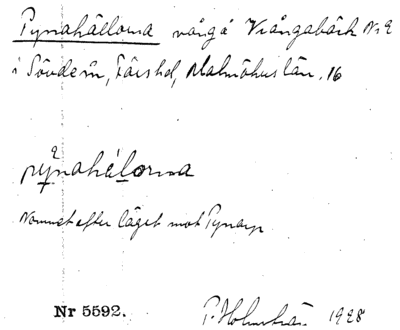 Pynahålorna vång å Vrångabäck No 2
i Sövde sn, Färs hd, Malmöhus län. 16
pynahålorna
Namnet efter läget mot Pynarp
Nr 5592. P. Holmström 1928